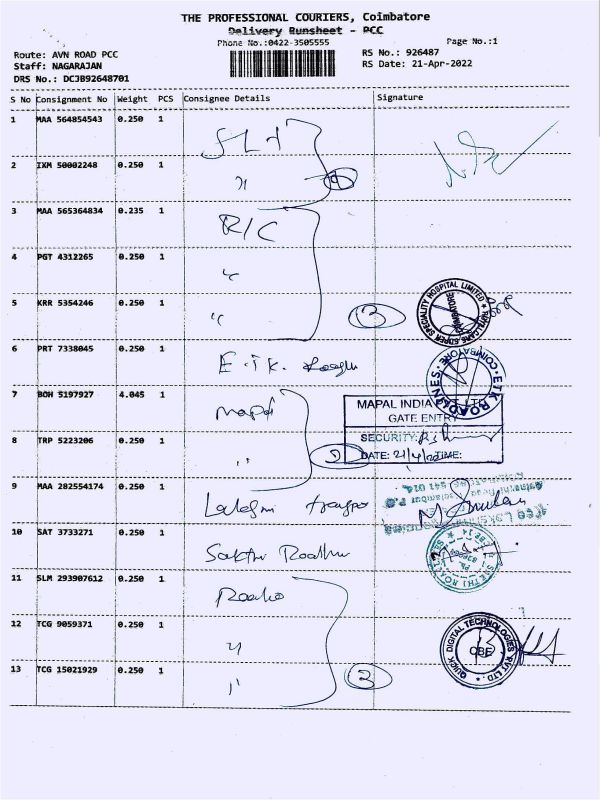 THE PROFESSIONAL COURIERS, Coimbatore
Delivery Runsheet - PCC
Phone No.:0422-3505555
Page No.:1
Route: AVN ROAD PCC
RS No.: 926487
Staff: NAGARAJAN
RS Date: 21-Apr-2022
DRS No.: DCJB92648701
S No Consignment No Weight PCS Consignee Details Signature
1 MAA 564854543 0.250 1
2 IXM 50002248 0.250 1 "
3 MAA 565364834 0.235 1 R/C
4 PGT 4312265 0.250 1 "
5 KRR 5354246 0.250 1 " 3
RIGHTCARE SUPER SPECIALITY HOSPITAL LIMITED
COIMBATORE
6 PRT 7338045 0.250 1 E.T.K.
ETK ROADLINES COIMBATORE
7 BOH 5197927 4.045 1 Mapal
MAPAL INDIA PVT. LTD.
GATE ENTRY
SECURITY:
8 TRP 5223206 0.250 1 " 2
DATE: 21/4/22 TIME:
9 MAA 282554174 0.250 1
10 SAT 3733271 0.250 1 Sakthi
11 SLM 293907612 0.250 1
12 TCG 9059371 0.250 1 "
QUICK DIGITAL TECHNOLOGIES PVT LTD.
CBE
13 TCG 15021929 0.250 1 " 3